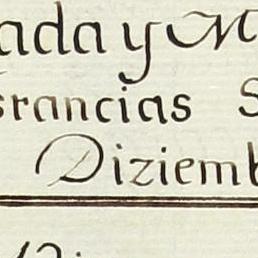 ada y M
srancias S
Diziemb